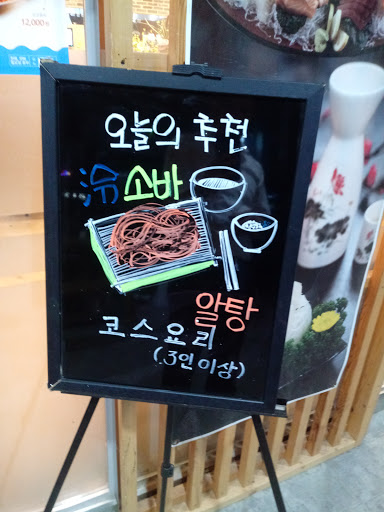 12,000원
오늘의 추천
冷 소바
알탕
코스요리
(3인 이상)